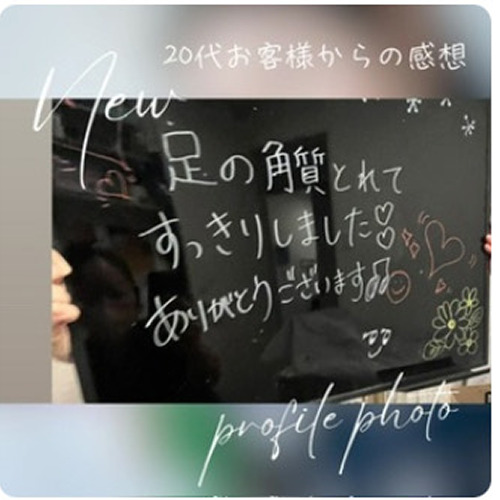 20代お客様からの感想
New
足の角質とれて
すっきりしました!!
ありがとうございます♫
profile photo